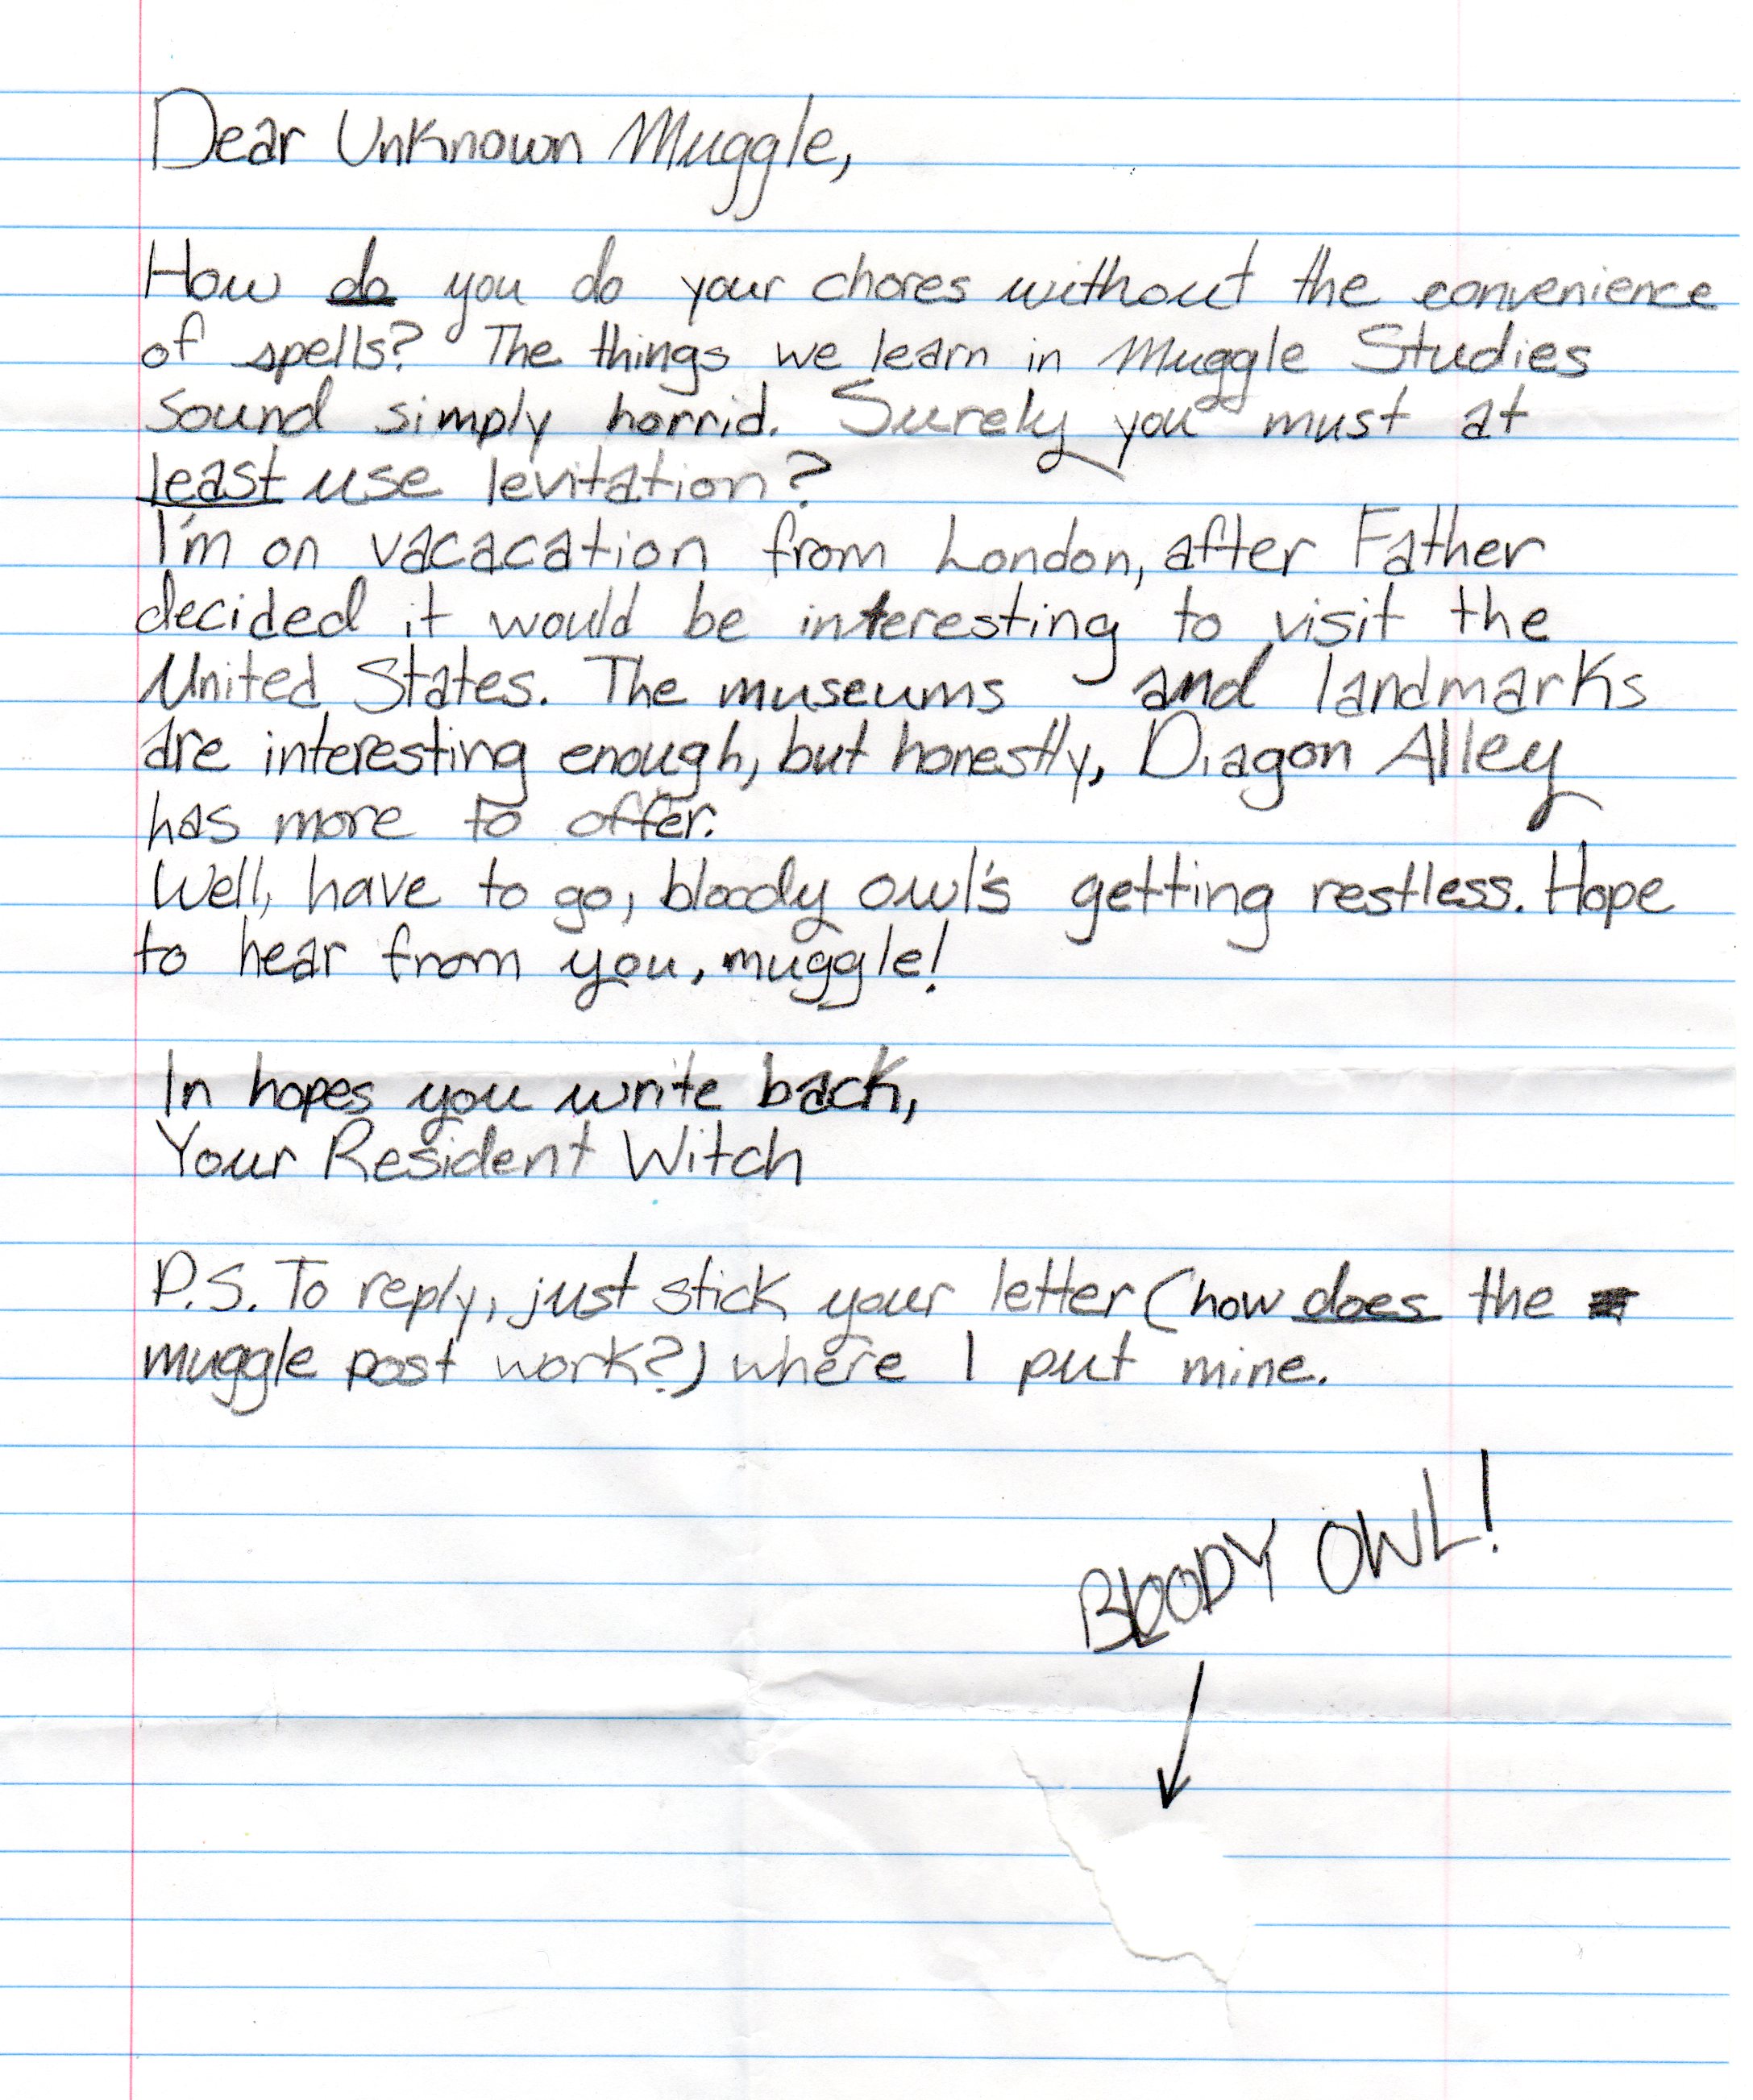 Dear Unknown Muggle,
How do you do your chores without the convenience
of spells? The things we learn in Muggle Studies
sound simply horrid. Surely you must at
least use levitation?
I'm on vacacation from London, after Father
decided it would be interesting to visit the
United States. The museums and landmarks
are interesting enough, but honestly, Diagon Alley
has more to offer.
Well, have to go, bloody owl's getting restless. Hope
to hear from you, muggle!
In hopes you write back,
Your Resident Witch
P.S. To reply, just stick your letter (how does the
muggle post work?) where I put mine.
BLOODY OWL!